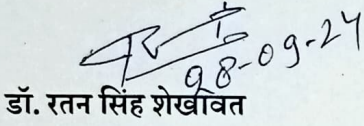 28-09-24
डॉ. रतन सिंह शेखावत